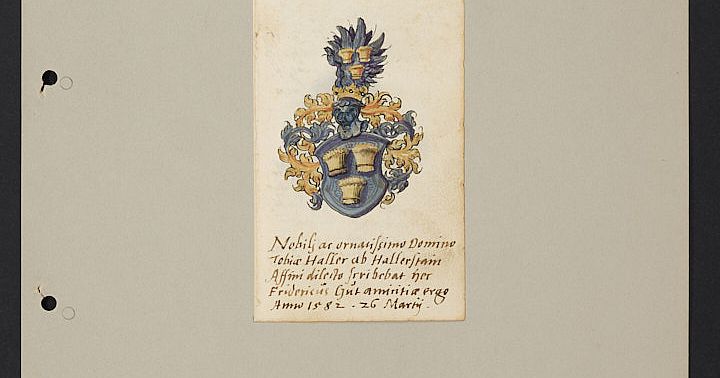 Nobilj ac ornatissimo Domino
Tobiæ Haller ab Hallerstain
Affini dilecto scribebat hęc
Fridericus Gut amicitiæ ergo
Anno 1582 . 26 Martij .